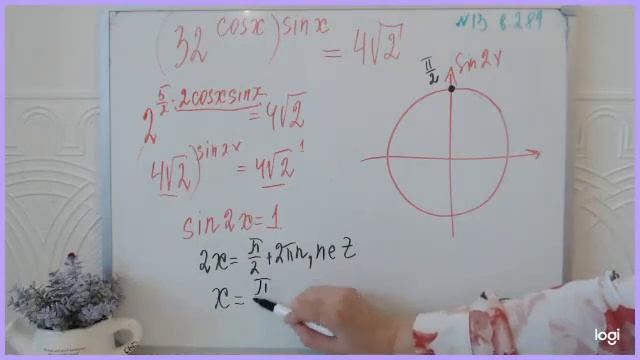 №13 в.289
(32^{cosx})^{sinx} = 4√2
2^{5/2 · 2cosxsinx} = 4√2
(4√2)^{sin2x} = 4√2^1
sin2x=1
2x = π/2 + 2πn, n∈Z
x = π
π/2
sin2x
logi